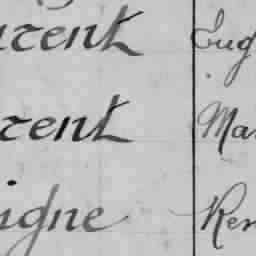 urent Eug
rent Mar
igne Ren